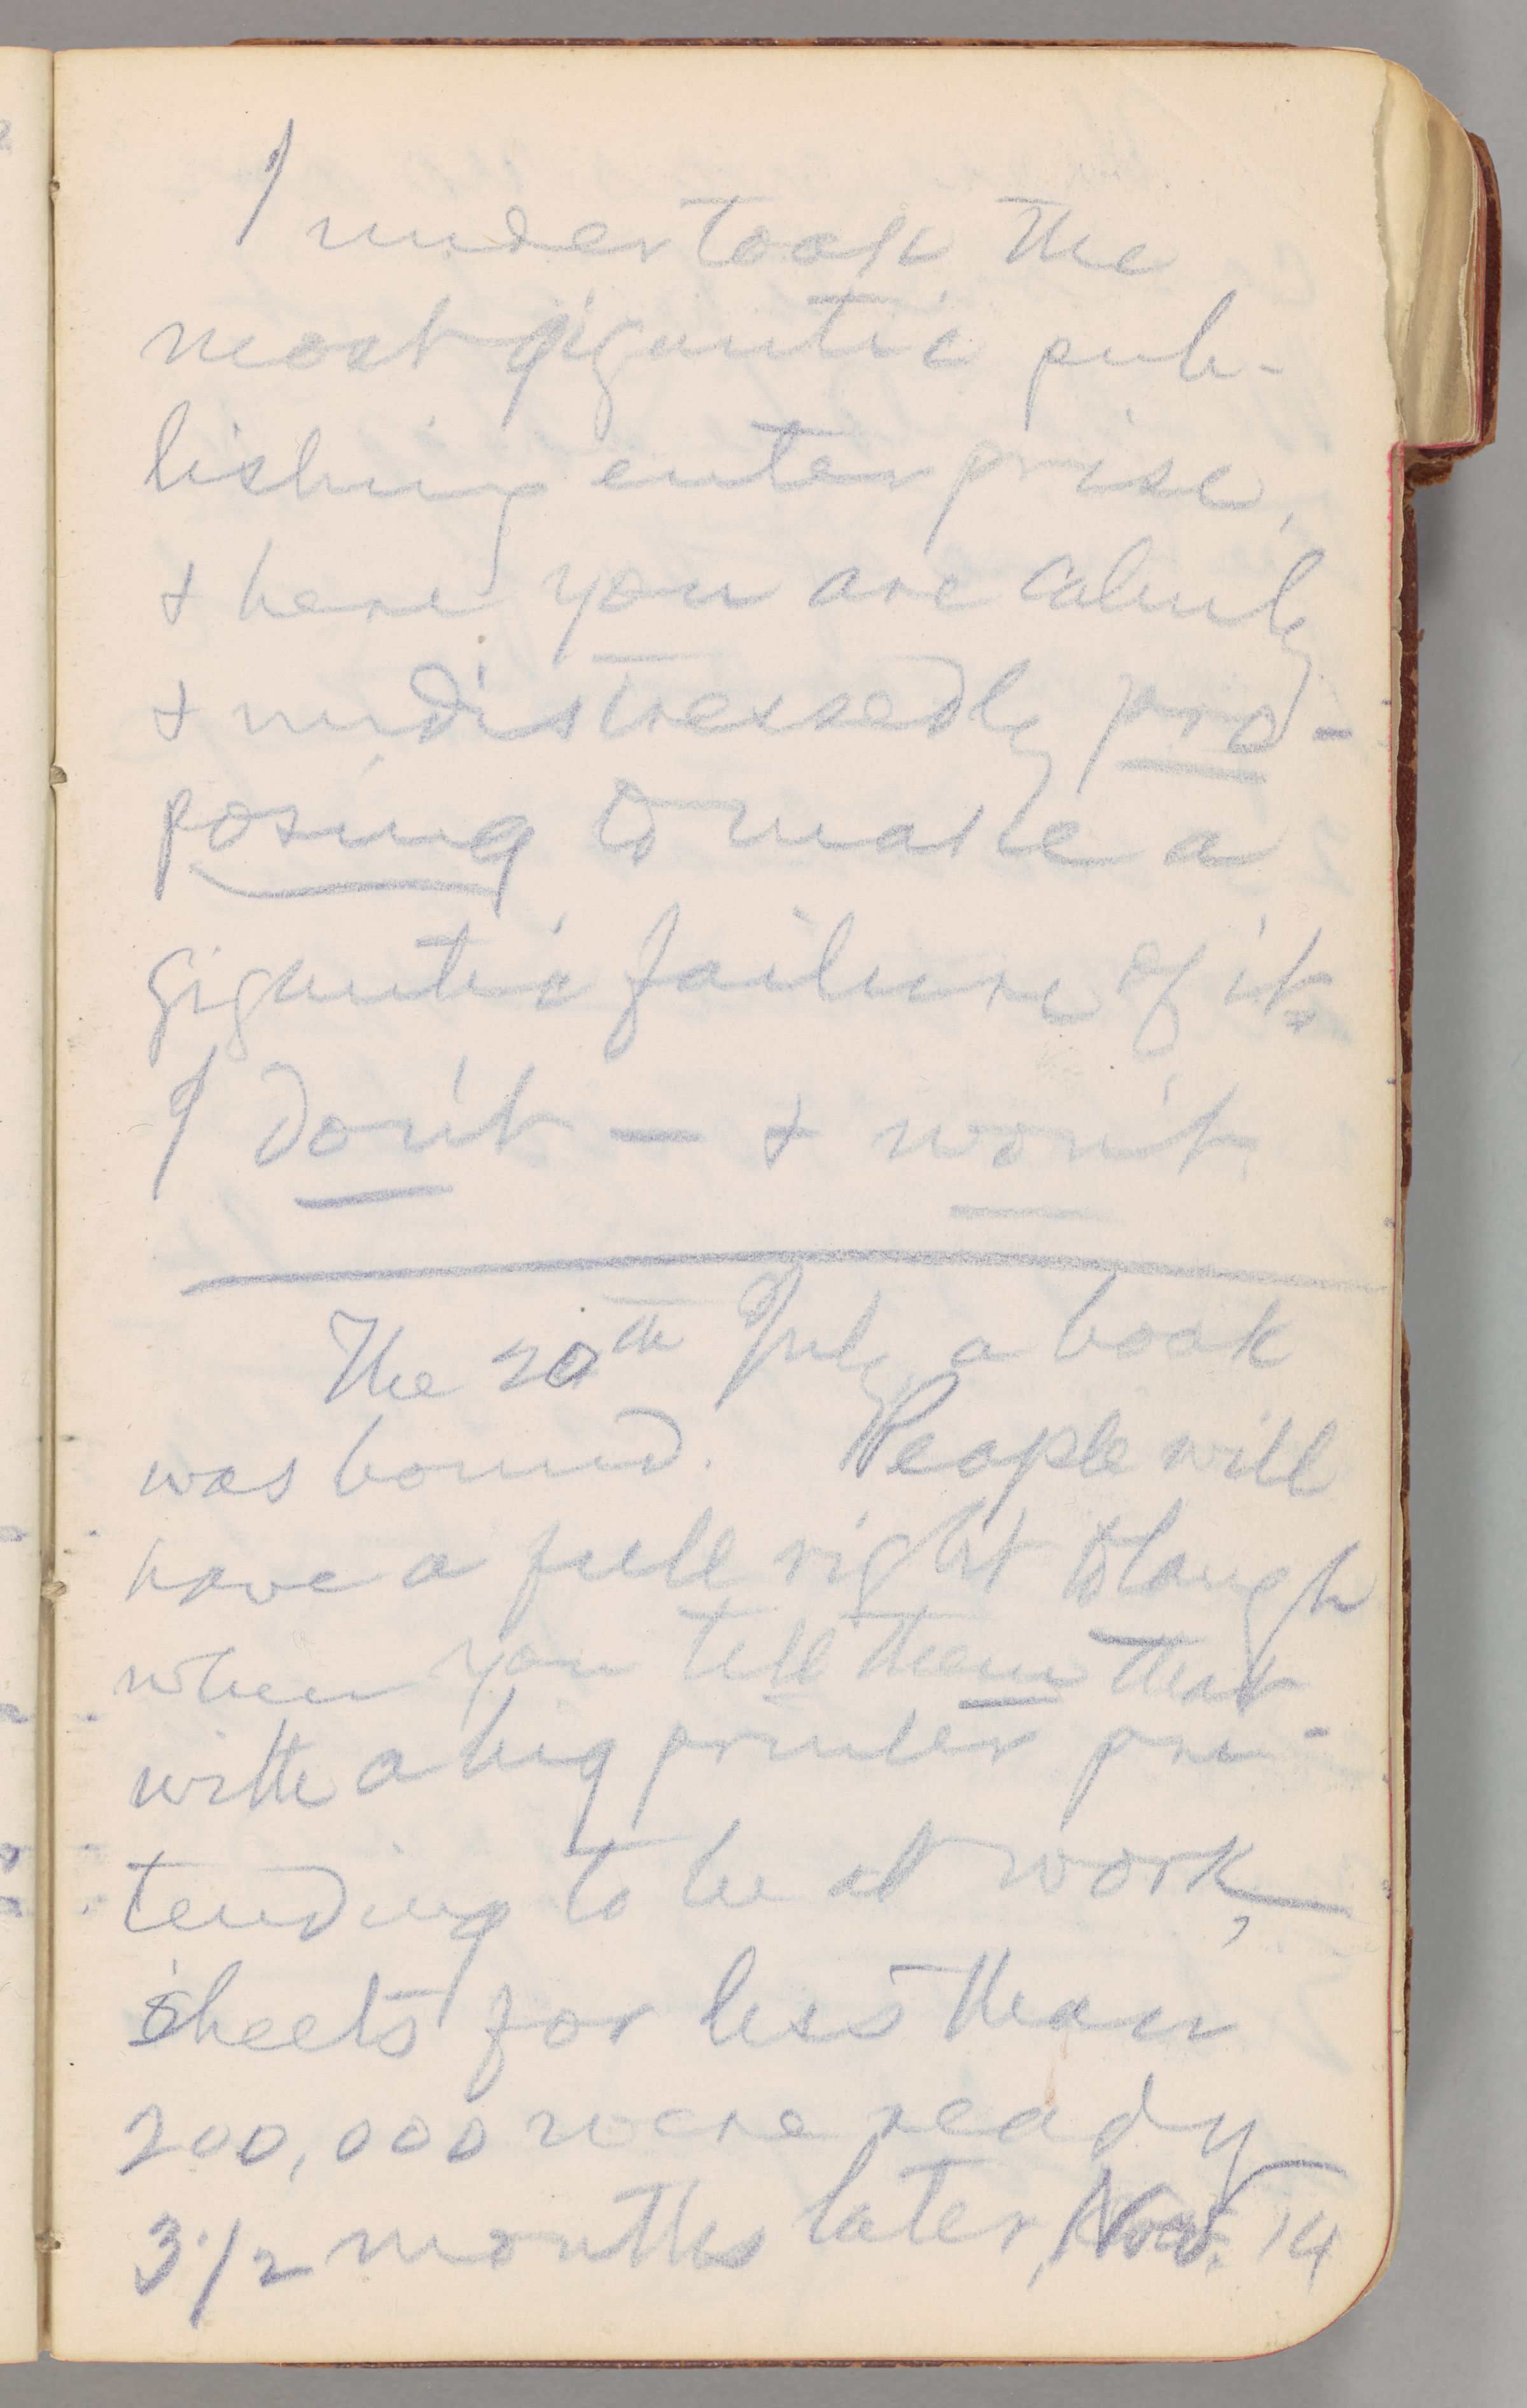 I undertook the
most gigantic pub-
lishing enterprise,
& here you are calmly
& undistressedly pro-
posing to make a
gigantic failure of it.
I don't — & won't.
The 20th July a book
was bound. People will
have a full right to laugh
when you tell them that
with a big printer pre-
tending to be at work,
sheets for less than
200,000 were ready
3 1/2 months later, Nov. 14